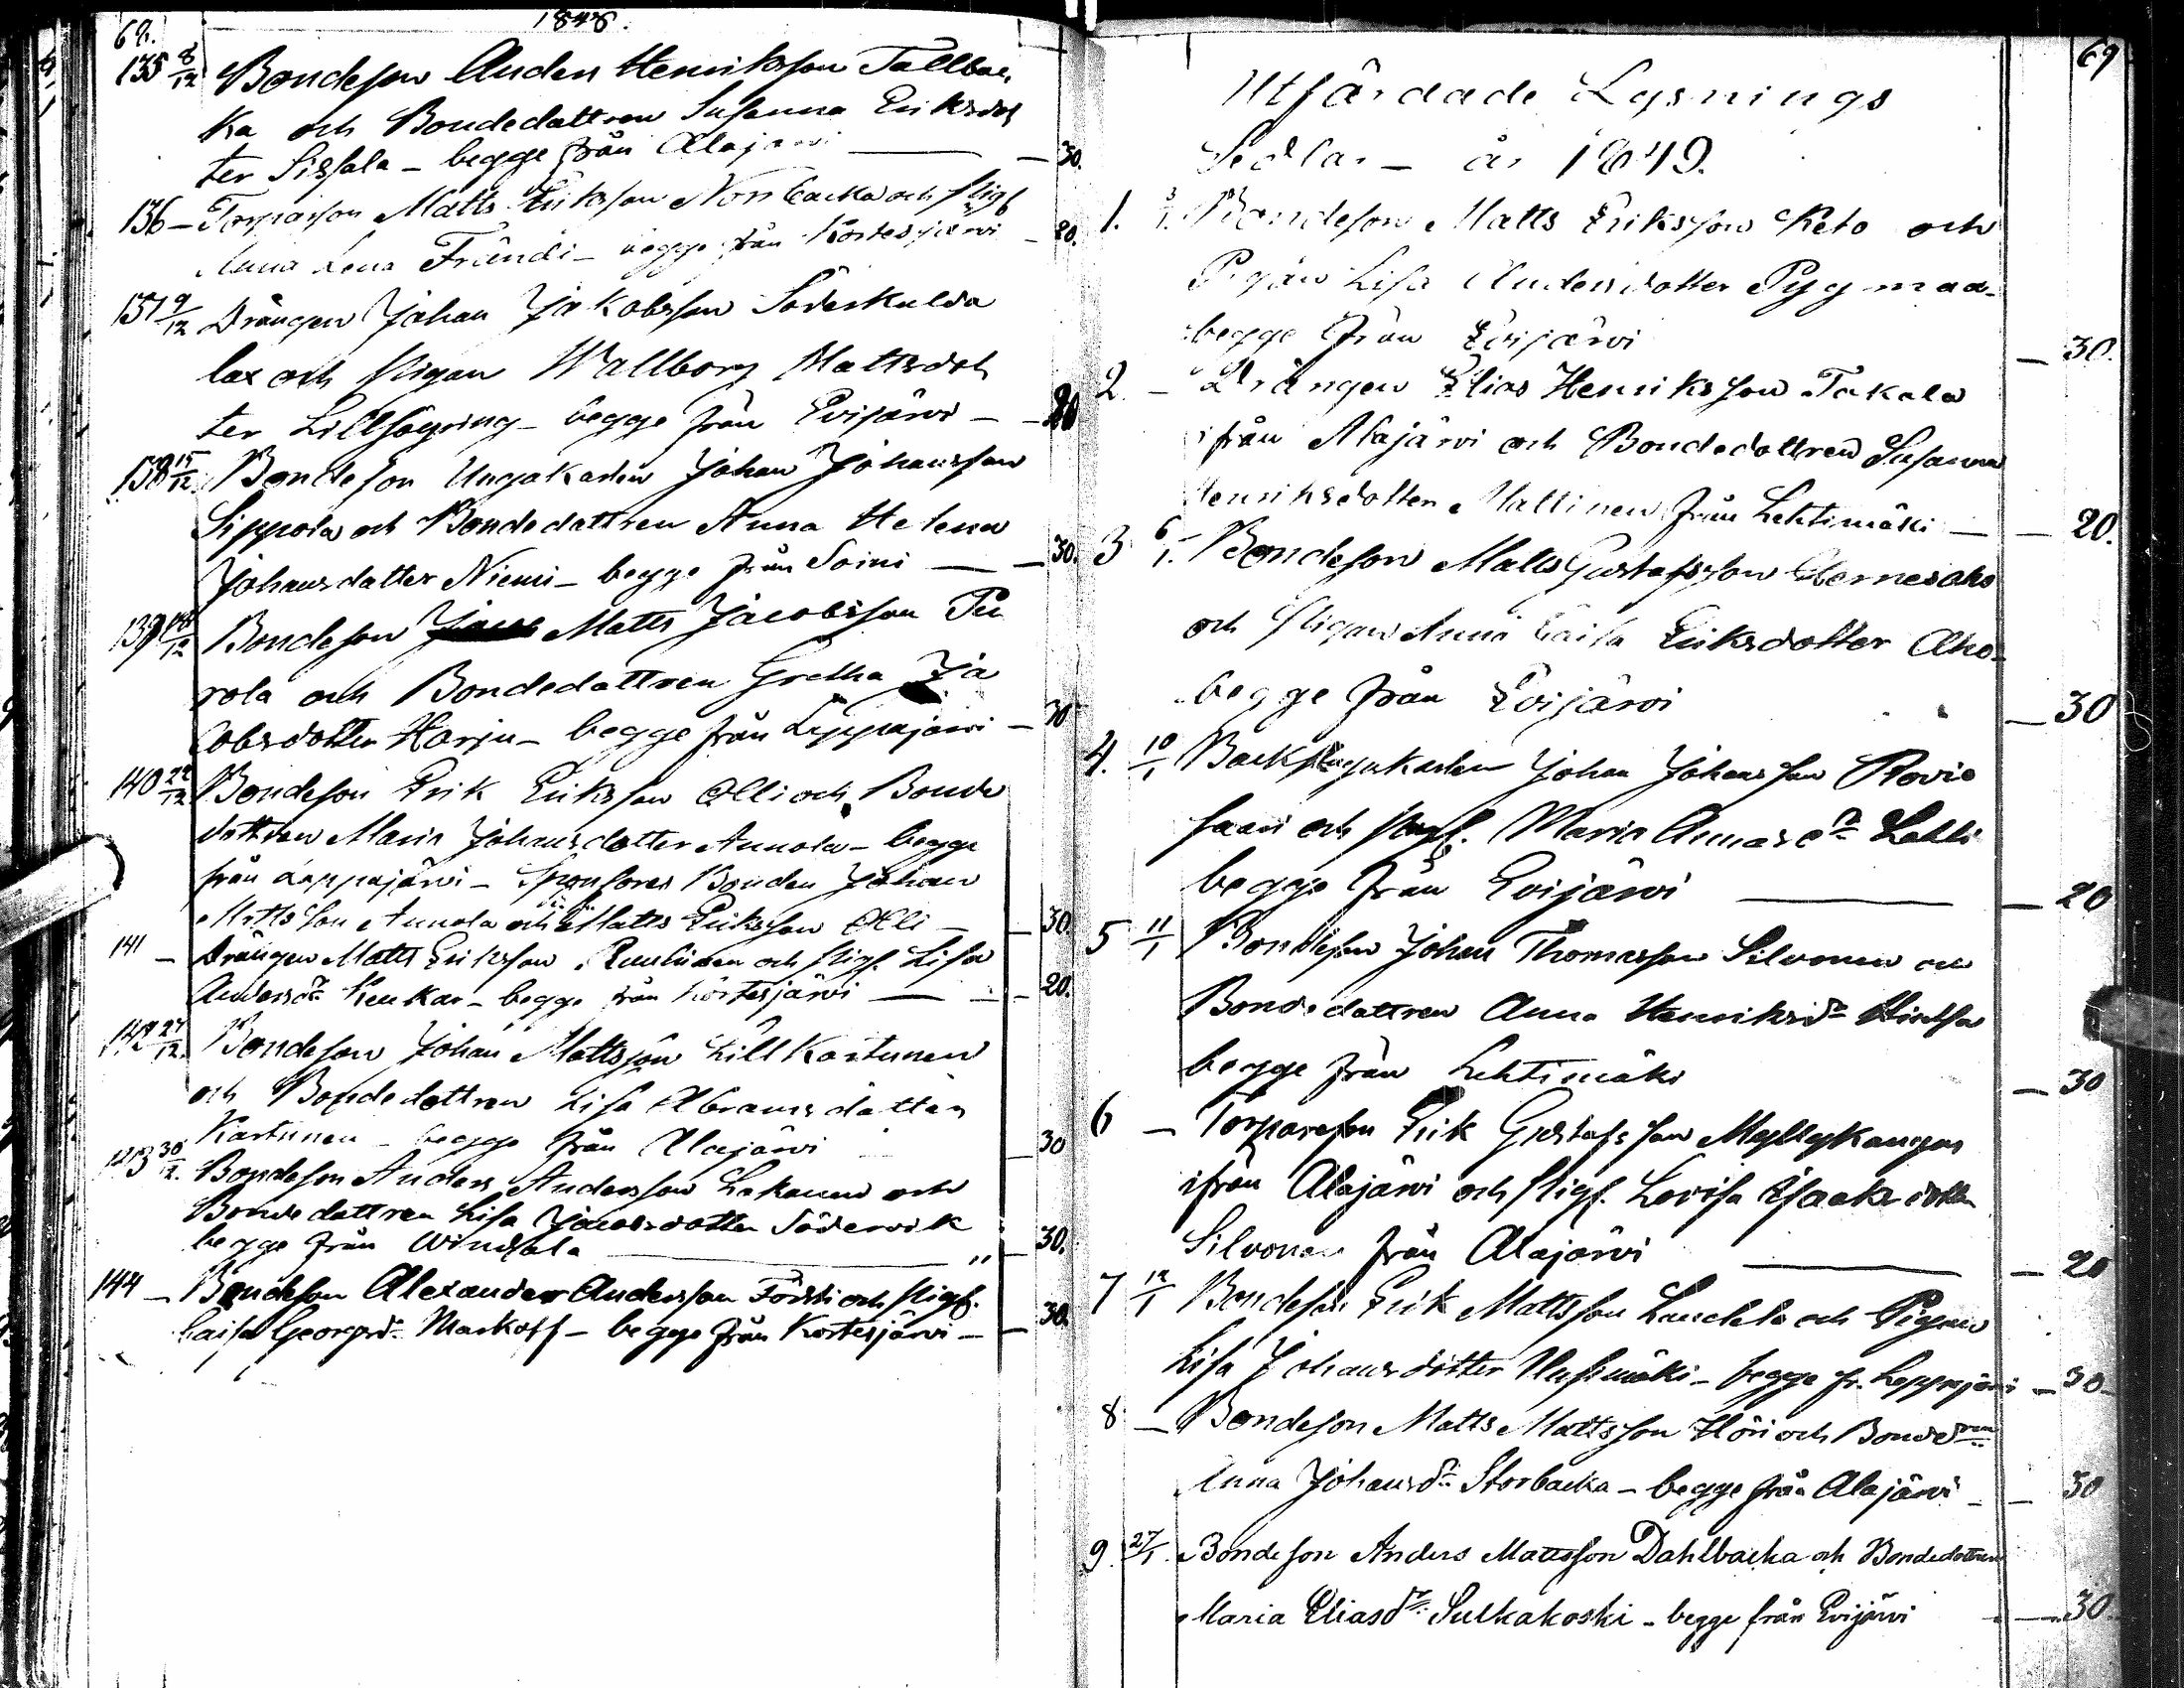 68. 1848.
135 8/12 Bondeson Anders Henriksson Tallbac
ka och Bondedottren Susanna Eriksdot
ter Sissala - begge från Alajärvi — 30.
136 - Torparson Matts Eriksson Norrbacka och pigf
Anna Lena Frändi - begge från Kortesjärvi - 20.
137 9/12 Drängen Johan Jakobsson Söderkulla
lax och pigan Wallborg Mattsdot
ter Lillsöyring - begge från Evijärvi - 20
138 15/12 Bondeson Ungakarlen Johan Johansson
Sippola och Bondedottren Anna Helena
Johansdotter Niemi - begge från Soini — 30.
139 18/12 Bondeson Matts Jacobsson Tu
rola och Bondedottren Gretha Ja
cobsdotter Harju - begge från Lappajärvi - 30
140 22/12 Bondeson Erik Eriksson Olli och Bonde
dottren Maria Johansdotter Annola - begge
från Lappajärvi - Sponsores Bonden Johan
Mattsson Annola och Matts Eriksson Olli - 30.
141 - Drängen Matts Eriksson och pigf. Lisa
Andersdr - begge från Kortesjärvi — 20.
142 27/12 Bondeson Johan Mattsson Lill Kortunen
och Bondedottren Lisa Abramsdotter
Kartunen - begge från Alajärvi — 30
143 30/12. Bondeson Anders Andersson Lakanen och
Bondedottren Lisa Jacobsdotter Södervik
begge från Windala — " 30.
144 - Bondeson Alexander Andersson Försti och pigf.
Caisa Georgsdr Markoff - begge från Kortesjärvi - 30.
69
Utfärdade Lysnings
Sedlar - år 1849.
1. 3/1. Bondeson Matts Eriksson Keto och
Pigan Lisa Andersdotter Pygmaa -
begge från Evijärvi — 30.
2. - Drängen Elias Henriksson Takala
ifrån Alajärvi och Bondedottren Susanna
Henriksdotter Mattinen från Lehtimäki — 20.
3 6/1. Bondeson Matts Gustafsson Hernesaho
och Pigan Anna Caisa Eriksdotter Aho -
begge från Evijärvi — 30
4. 10/1 Johan Johansson Rovio
saari och pigf. Maria Annasdr Lahti
begge från Evijärvi — 20
5 11/1 Bondeson Johan Thomasson Silvonen och
Bondedottren Anna Henriksdr Hietsa
begge från Lehtimäki — 30
6 - Torpareson Erik Gustafsson Myllykangas
ifrån Alajärvi och pigf. Lovisa Isaaksdotter
Silvonen från Alajärvi — 20
7 12/1 Bondeson Erik Mattsson Landela och Pigan
Lisa Johansdotter Uusimäki - begge fr. Lappajärvi - 30 -
8 - Bondeson Matts Mattsson Höri och Bondedren
Anna Johansdr Storbacka - begge från Alajärvi - 30
9. 27/1. Bondeson Anders Mattsson Dahlbacka och Bondedottren
Maria Eliasdr Sulkakoski - begge från Evijärvi — 30.